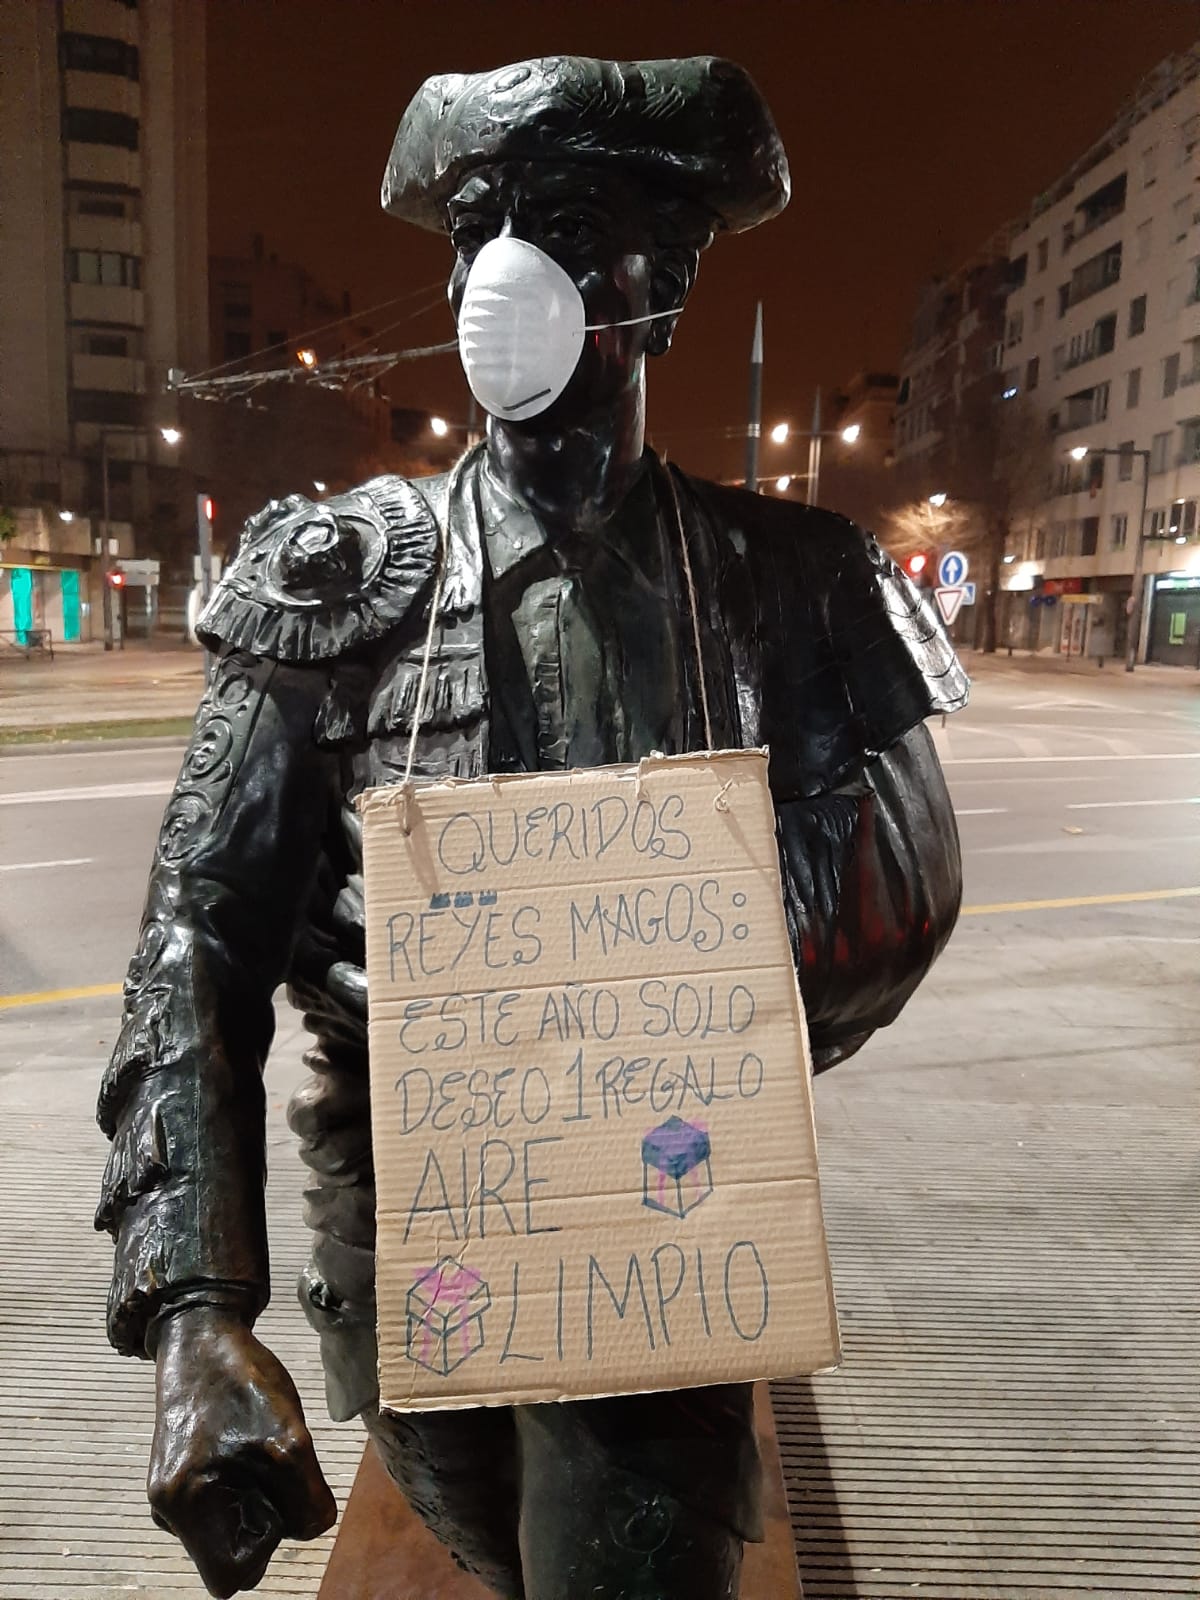 QUERIDOS
REYES MAGOS:
ESTE AÑO SOLO
DESEO 1 REGALO
AIRE
LIMPIO